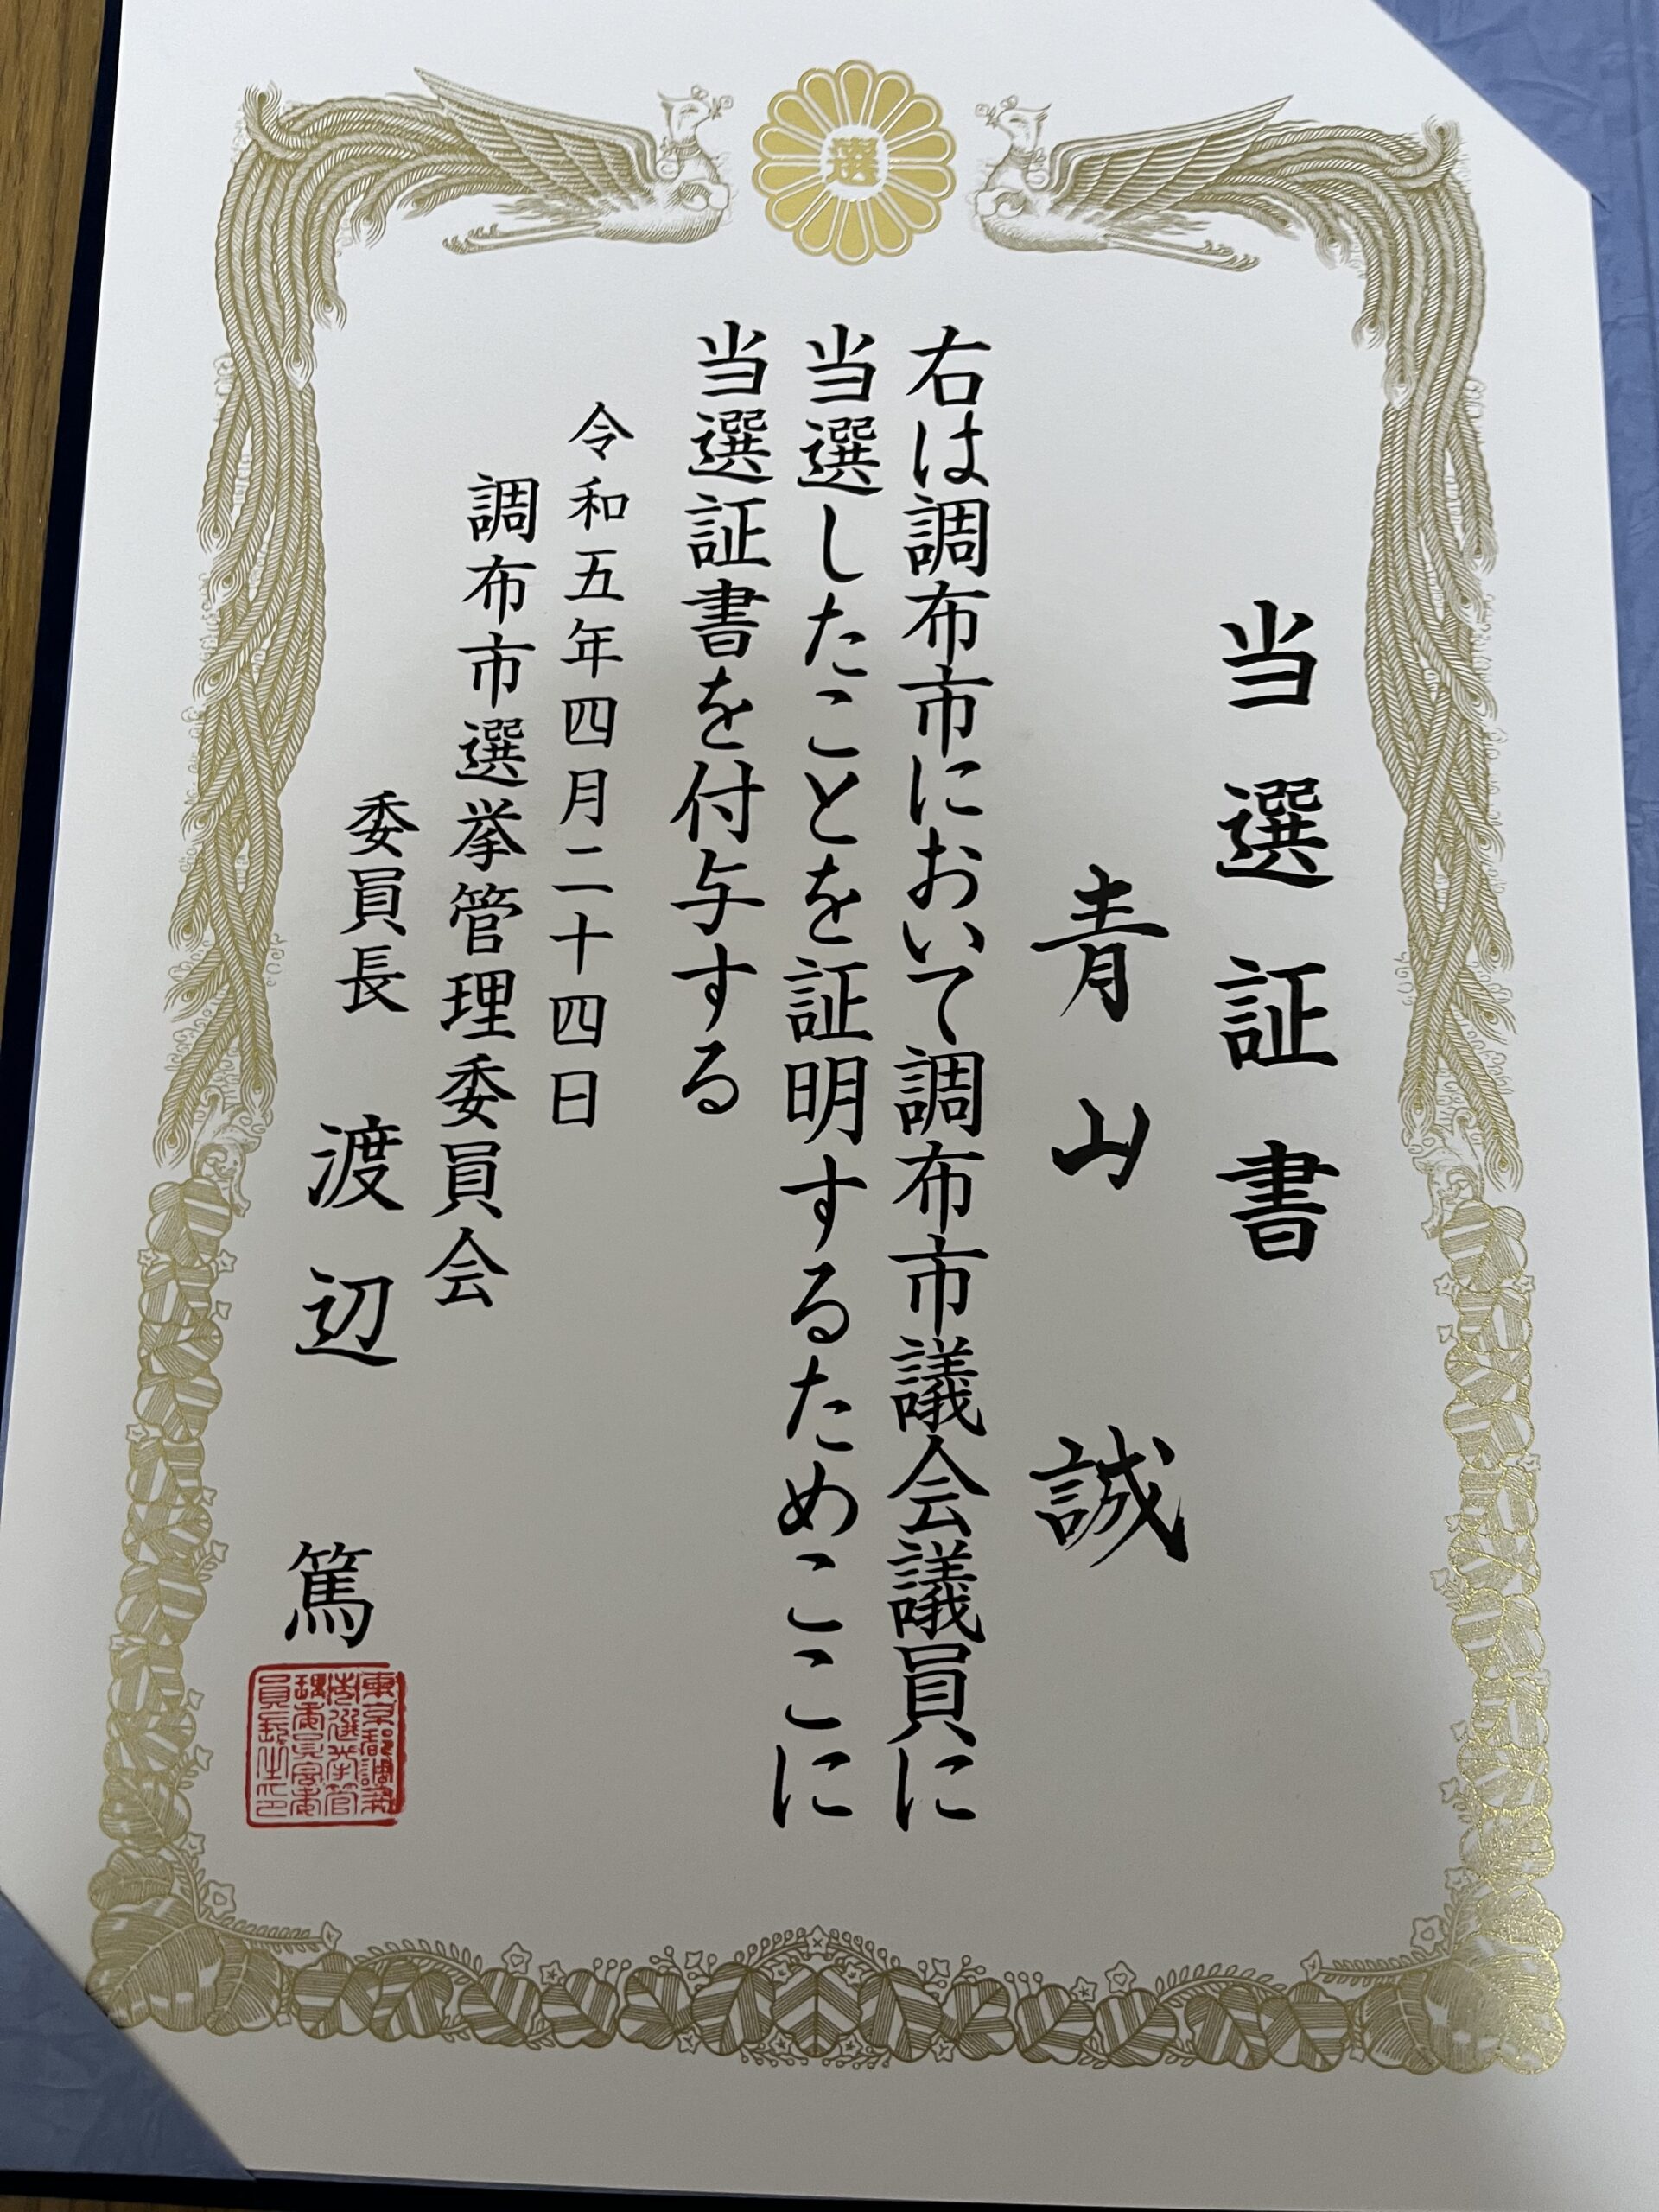 選
当選証書
青山 誠
右は調布市において調布市議会議員に
当選したことを証明するためここに
当選証書を付与する
令和五年四月二十四日
調布市選挙管理委員会
委員長 渡辺 篤
東京都調布
市選挙管
理委員会委
員長之印